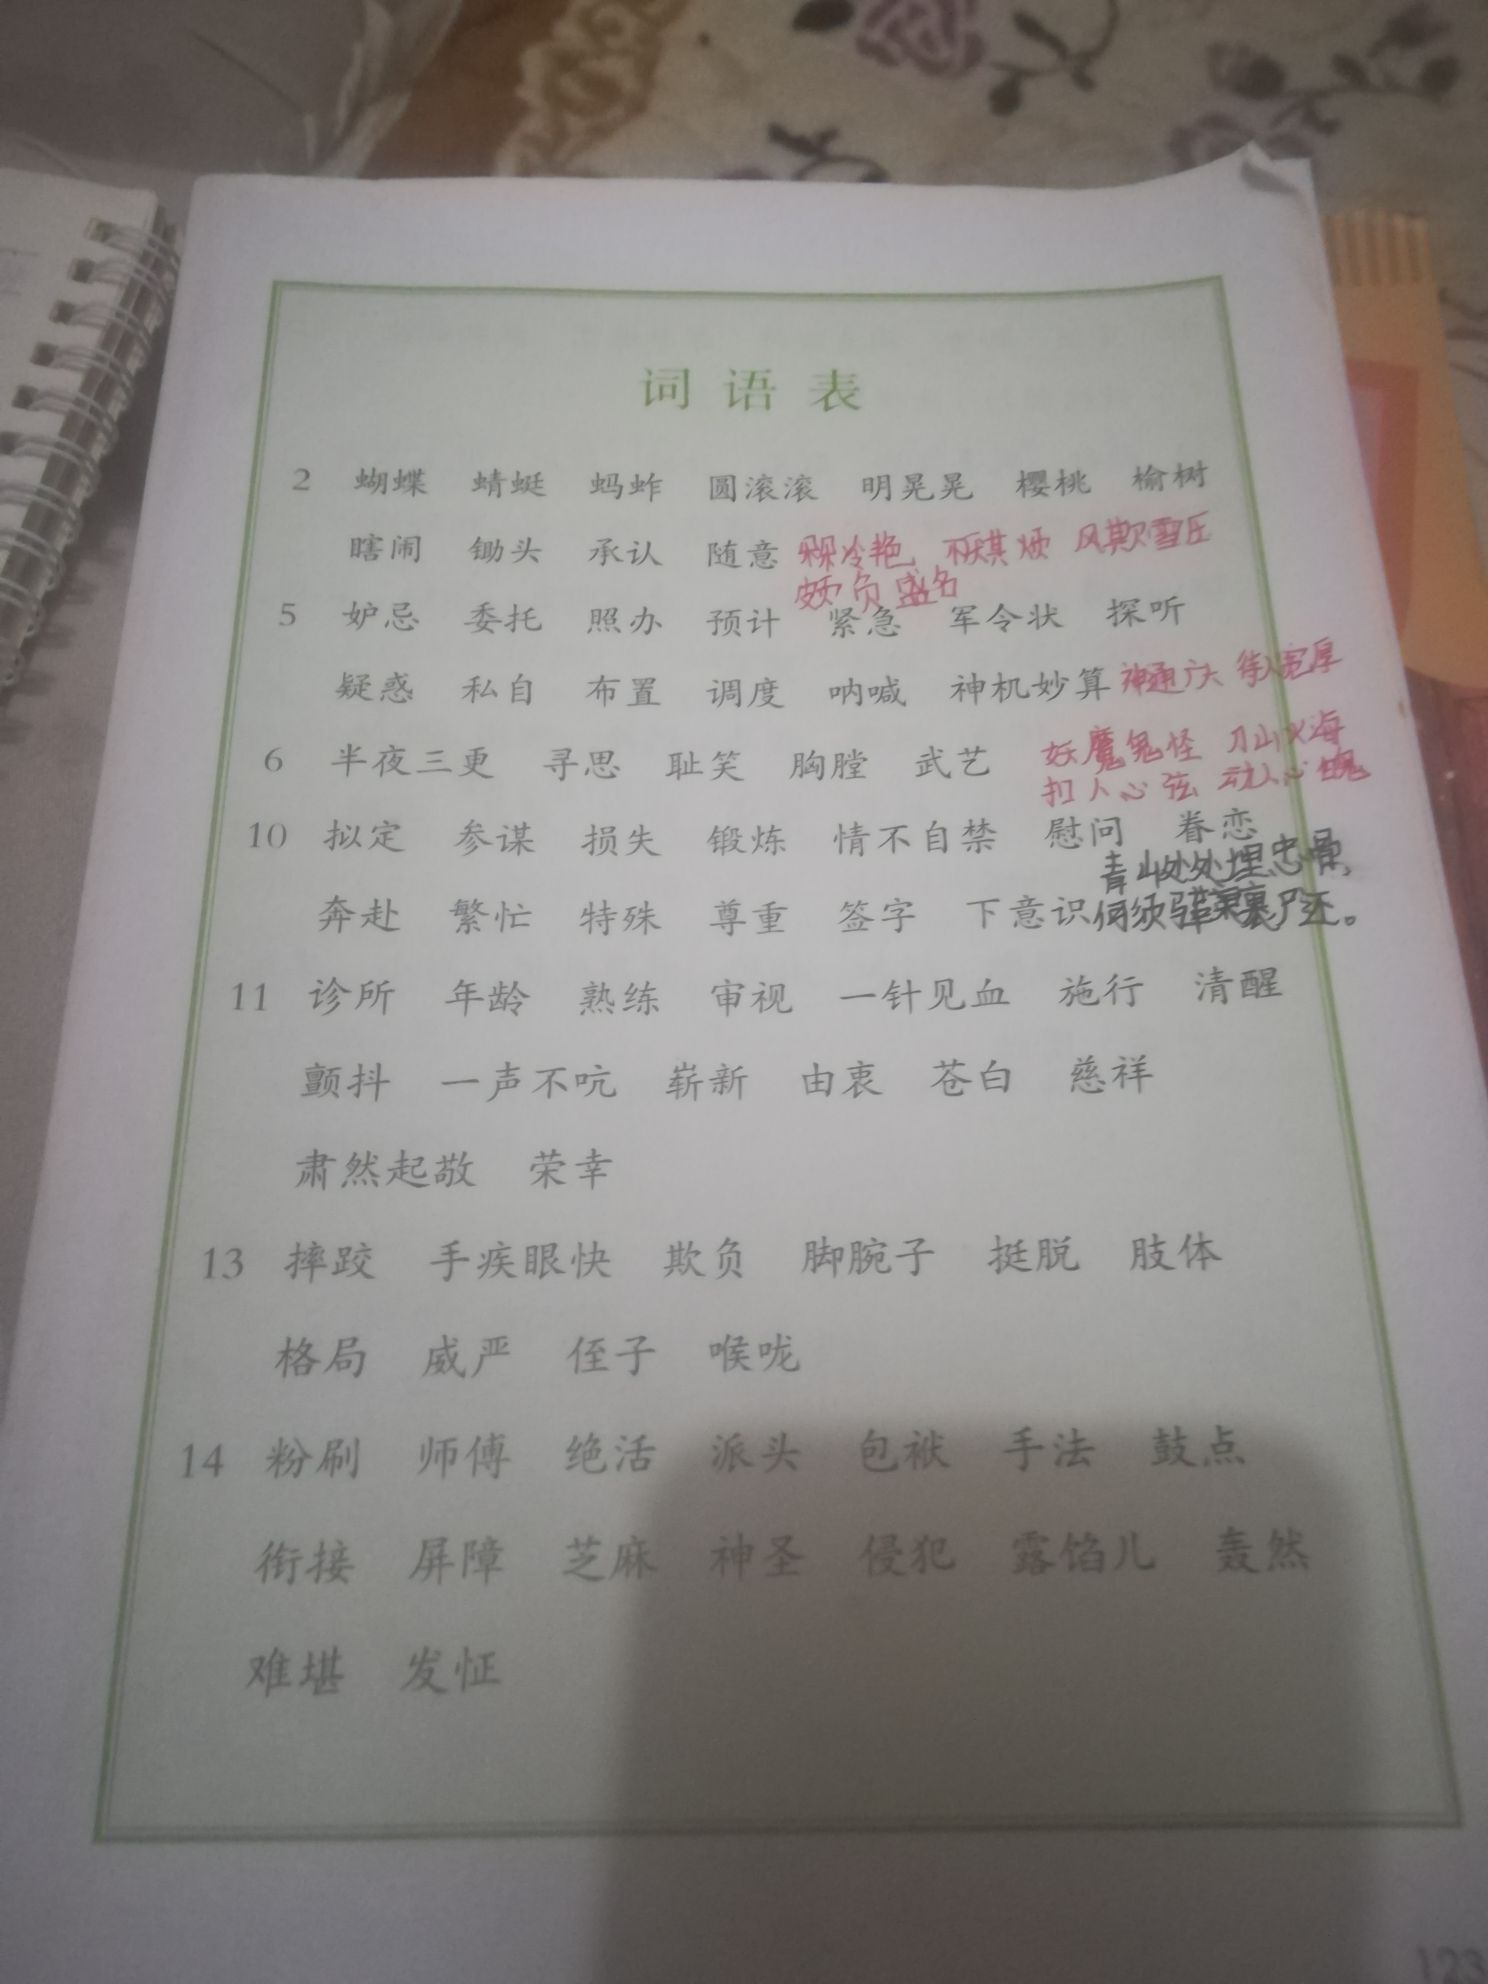 词语表
2 蝴蝶 蜻蜓 蚂蚱 圆滚滚 明晃晃 樱桃 榆树
瞎闹 锄头 承认 随意 冷艳 不厌其烦 风欺雪压
颇负盛名
5 妒忌 委托 照办 预计 紧急 军令状 探听
疑惑 私自 布置 调度 呐喊 神机妙算 神通广大 待人宽厚
6 半夜三更 寻思 耻笑 胸膛 武艺 妖魔鬼怪 刀山火海
扣人心弦 动人心魄
10 拟定 参谋 损失 锻炼 情不自禁 慰问 眷恋
青山处处埋忠骨,
奔赴 繁忙 特殊 尊重 签字 下意识 何须马革裹尸还。
11 诊所 年龄 熟练 审视 一针见血 施行 清醒
颤抖 一声不吭 崭新 由衷 苍白 慈祥
肃然起敬 荣幸
13 摔跤 手疾眼快 欺负 脚腕子 挺脱 肢体
格局 威严 侄子 喉咙
14 粉刷 师傅 绝活 派头 包袱 手法 鼓点
衔接 屏障 芝麻 神圣 侵犯 露馅儿 轰然
难堪 发怔
123